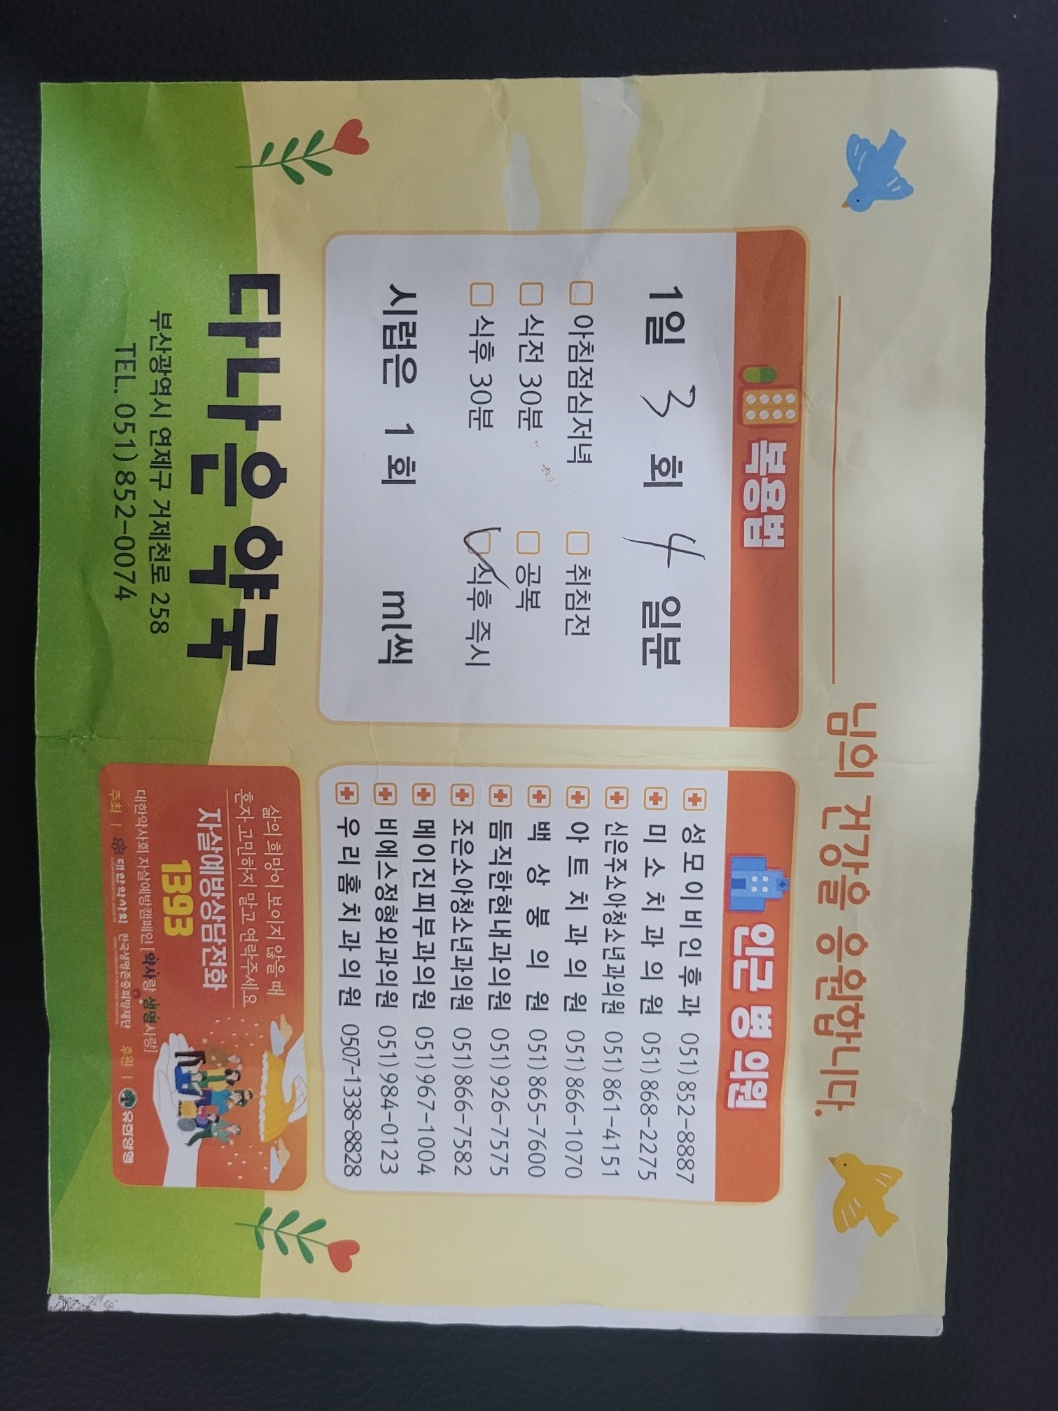 님의 건강을 응원합니다.
복용법
1일 3 회 4 일분
아침점심저녁 취침전
식전 30분 공복
식후 30분 식후 즉시
시럽은 1 회 ml씩
인근 병 의원
성모이비인후과 051)852-8887
미소치과의원 051)868-2275
신은주소아청소년과의원 051)861-4151
아트치과의원 051)866-1070
백상봉의원 051)865-7600
듬직한현내과의원 051)926-7575
조은소아청소년과의원 051)866-7582
메이진피부과의원 051)967-1004
비에스정형외과의원 051)984-0123
우리홈치과의원 0507-1338-8828
다나은약국
부산광역시 연제구 거제천로 258
TEL. 051)852-0074
삶의 희망이 보이지 않을 때
혼자 고민하지 말고 연락주세요
자살예방상담전화
1393
대한약사회 자살예방캠페인 [약사랑 생명사랑]
주최 | 대한약사회 한국생명존중희망재단 후원 | 유한양행